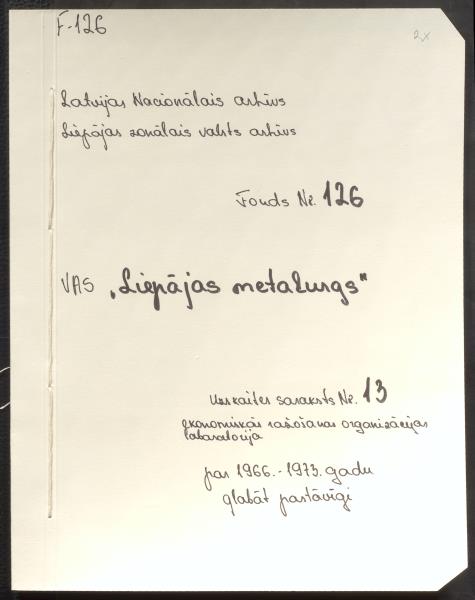 F-126
2x
Latvijas Nacionālais arhīvs
Liepājas zonālais valsts arhīvs
Fonds Nr. 126
VAS „Liepājas metalurgs"
Uzskaites saraksts Nr. 13
ekonomiskās ražošanas organizācijas
laboratorija
par 1966.-1973. gadu
glabāt pastāvīgi